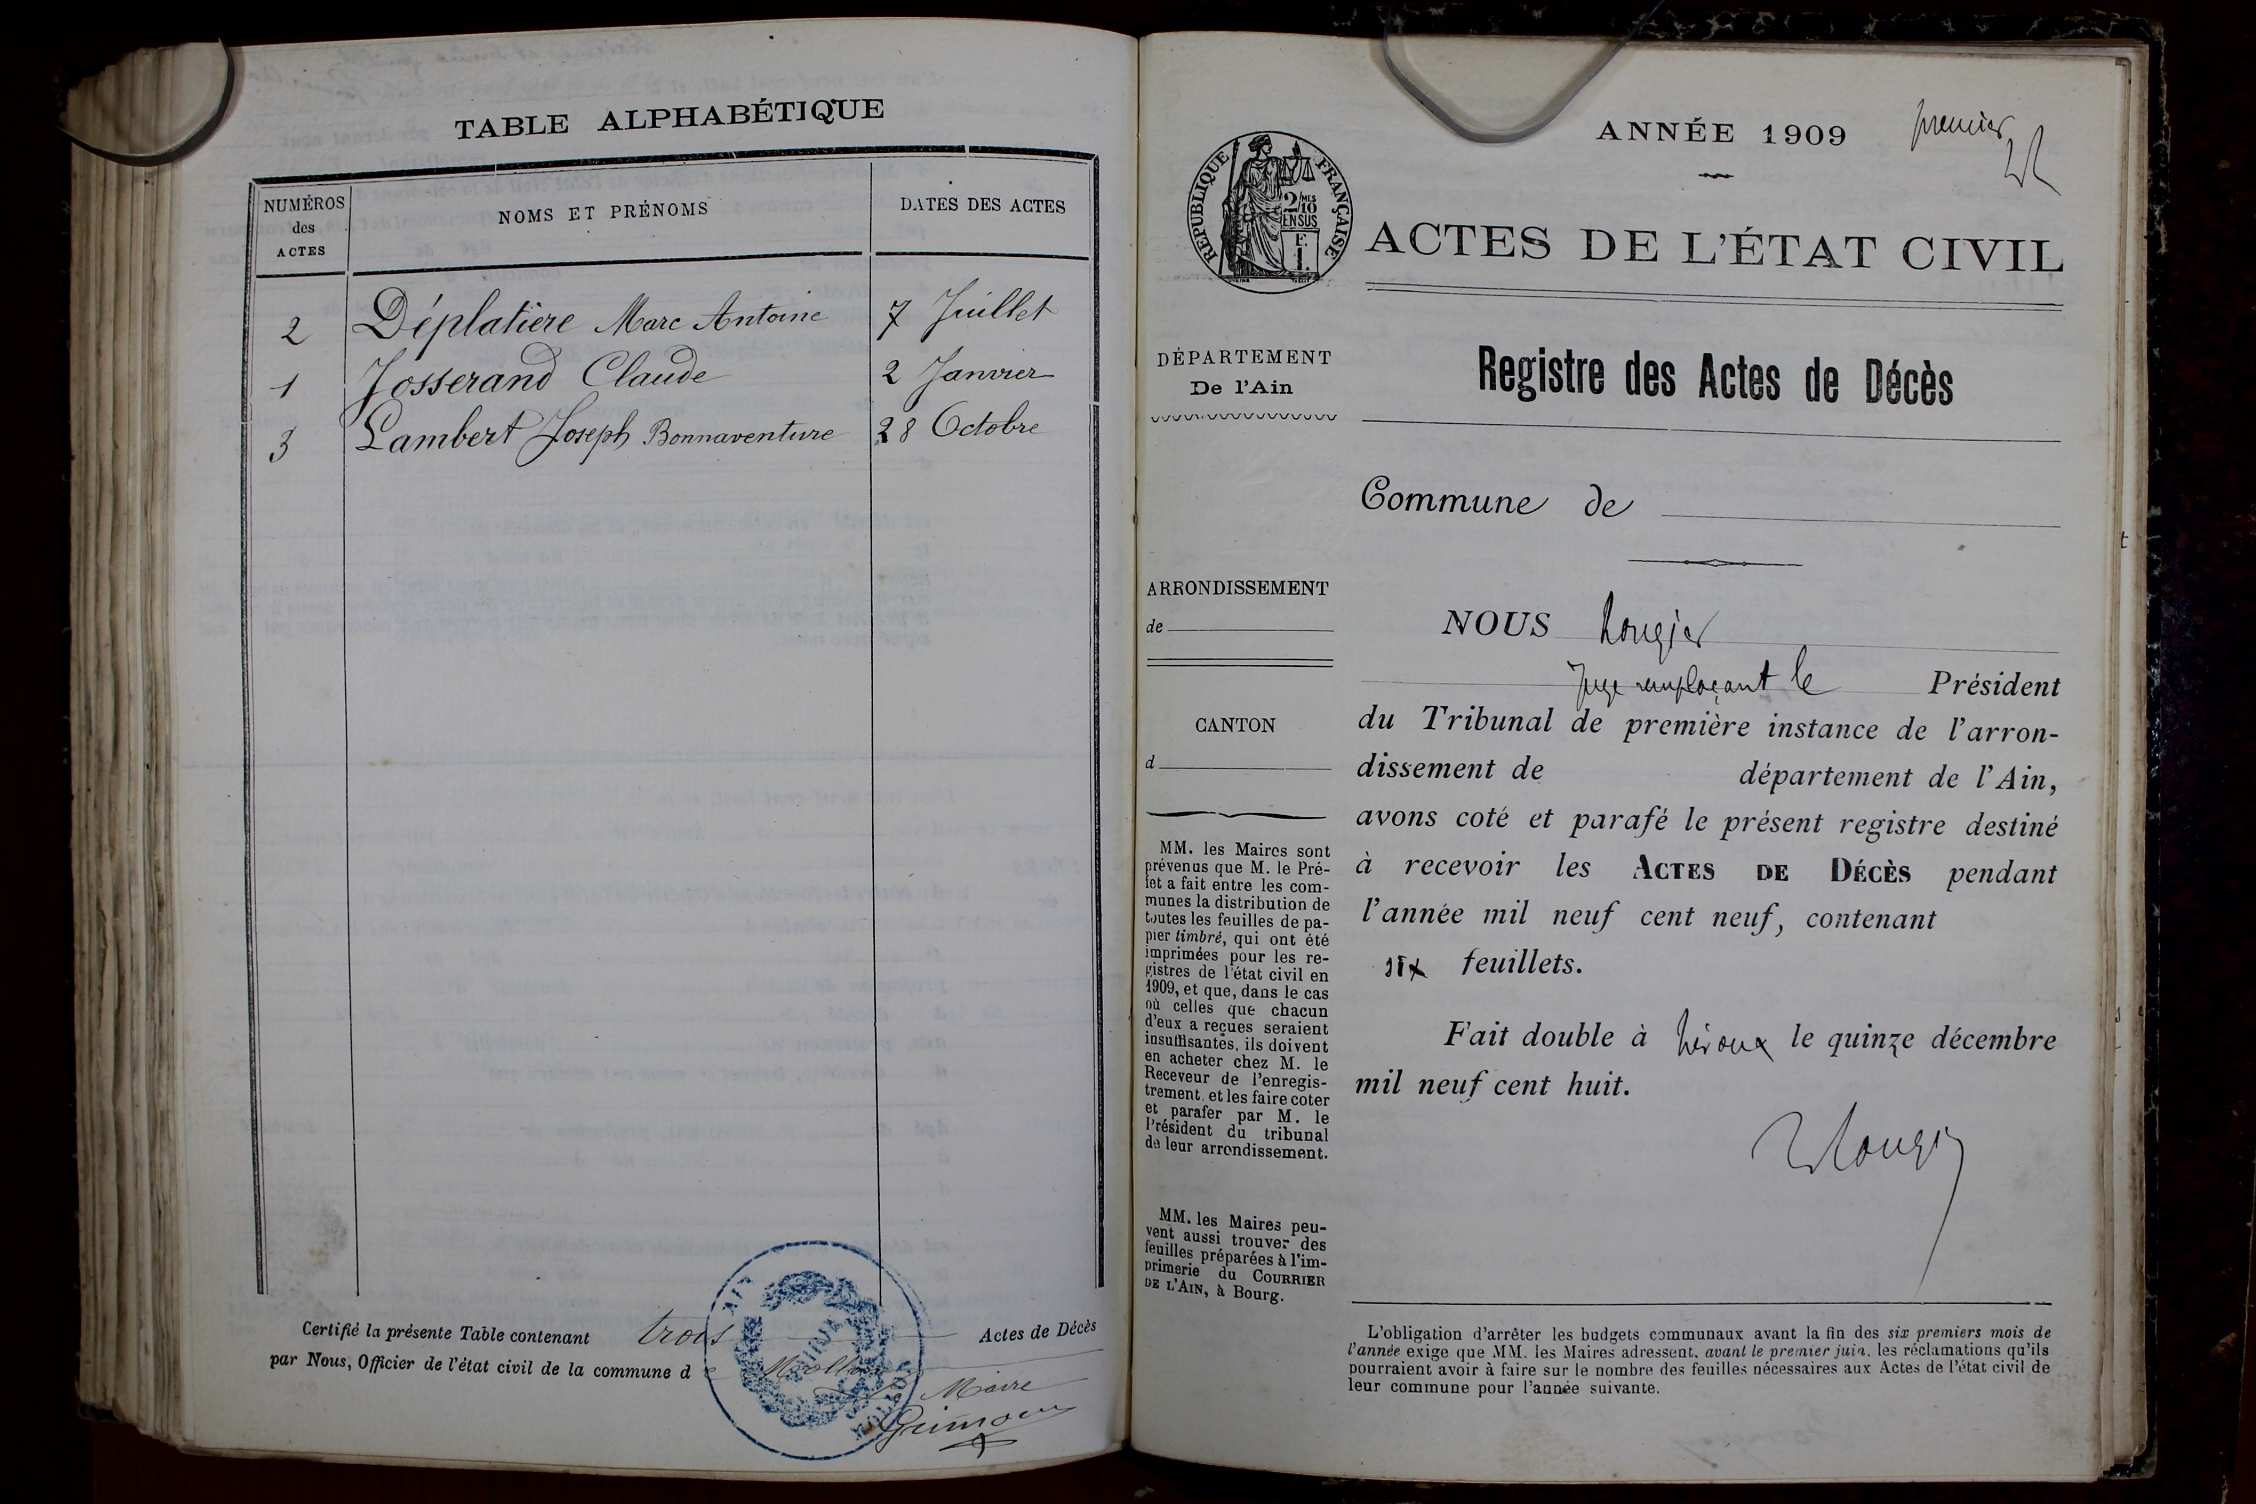 TABLE ALPHABÉTIQUE
NUMÉROS des ACTES
NOMS ET PRÉNOMS
DATES DES ACTES
2 Déplatière Marc Antoine 7 Juillet
1 Josserand Claude 2 Janvier
3 Lambert Joseph Bonnaventure 28 Octobre
Certifié la présente Table contenant trois Actes de Décès
par Nous, Officier de l'état civil de la commune de Mollon
Le Maire
premier
ANNÉE 1909
RÉPUBLIQUE FRANÇAISE
2/10 MES
EN SUS
ACTES DE L'ÉTAT CIVIL
DÉPARTEMENT
De l'Ain
Registre des Actes de Décès
Commune de
ARRONDISSEMENT
de
CANTON
d
NOUS Rougier
Juge remplaçant le Président
du Tribunal de première instance de l'arron-
dissement de département de l'Ain,
avons coté et parafé le présent registre destiné
à recevoir les ACTES DE DÉCÈS pendant
l'année mil neuf cent neuf, contenant
six feuillets.
Fait double à Trévoux le quinze décembre
mil neuf cent huit.
Rougier
MM. les Maires sont
prévenus que M. le Pré-
fet a fait entre les com-
munes la distribution de
toutes les feuilles de pa-
pier timbré, qui ont été
imprimées pour les re-
gistres de l'état civil en
1909, et que, dans le cas
où celles que chacun
d'eux a reçues seraient
insuffisantes, ils doivent
en acheter chez M. le
Receveur de l'enregis-
trement, et les faire coter
et parafer par M. le
Président du tribunal
de leur arrondissement.
MM. les Maires peu-
vent aussi trouver des
feuilles préparées à l'im-
primerie du COURRIER
DE L'AIN, à Bourg.
L'obligation d'arrêter les budgets communaux avant la fin des six premiers mois de
l'année exige que MM. les Maires adressent, avant le premier juin, les réclamations qu'ils
pourraient avoir à faire sur le nombre des feuilles nécessaires aux Actes de l'état civil de
leur commune pour l'année suivante.